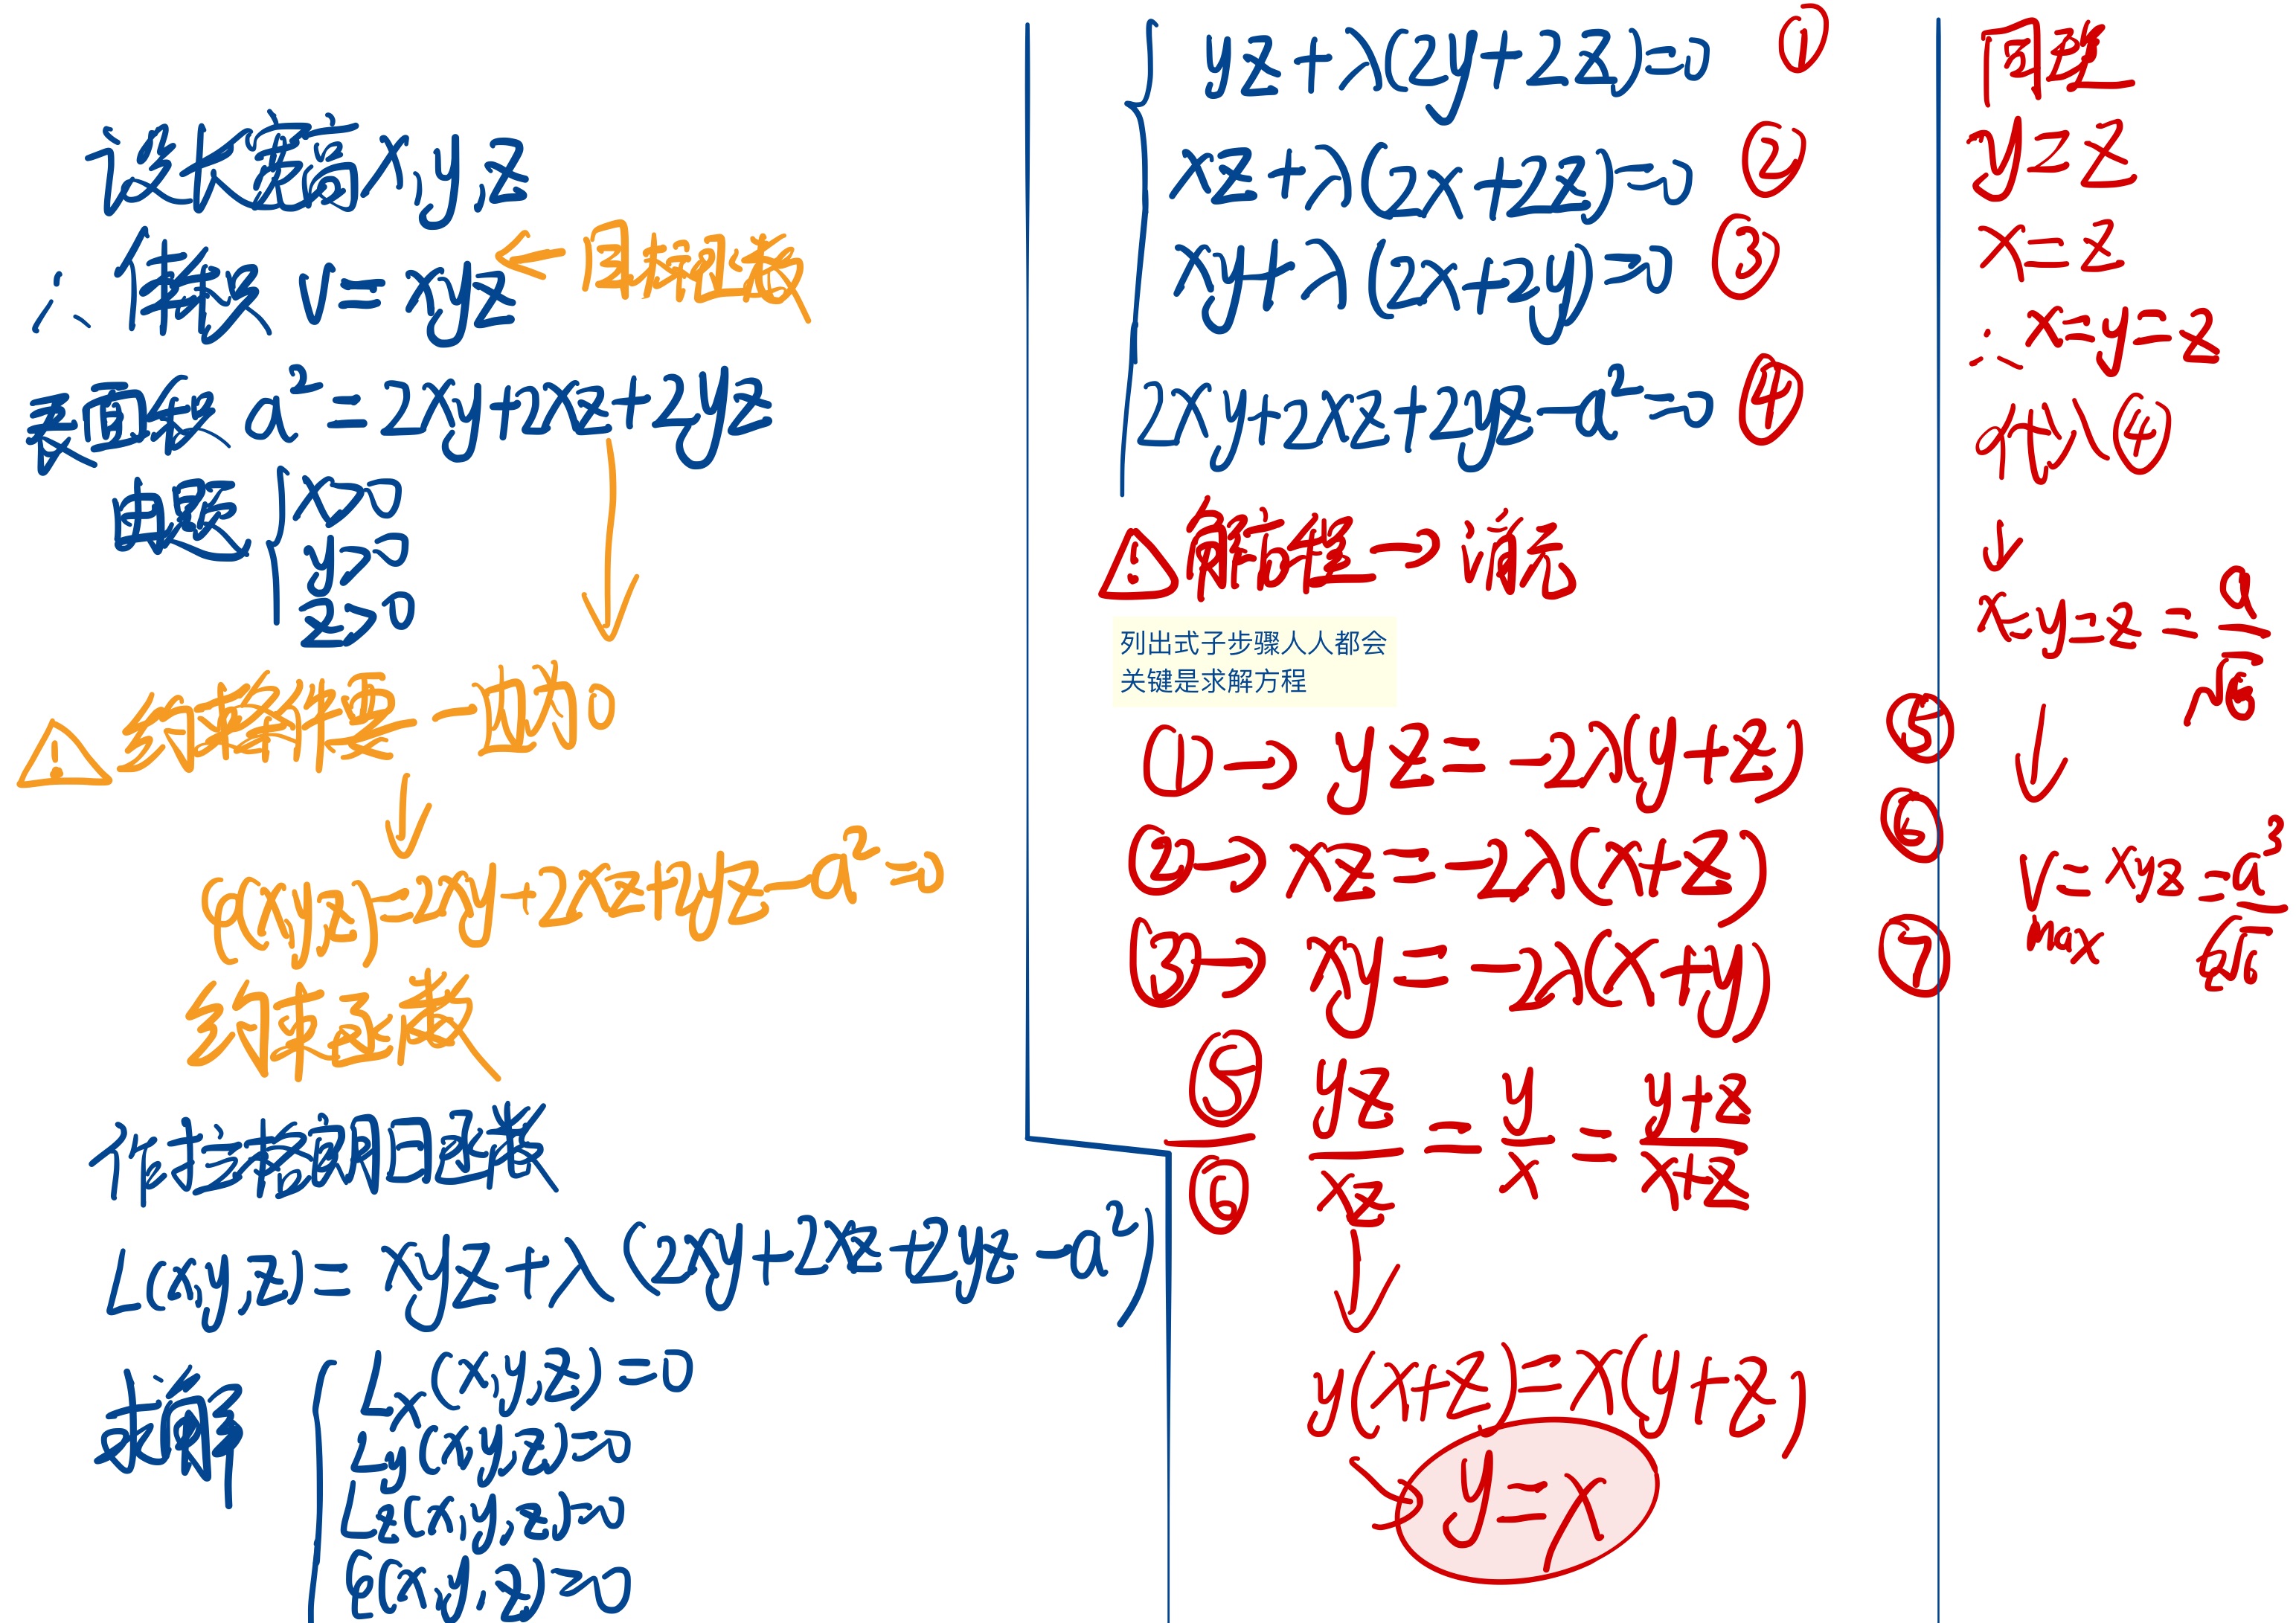 设长宽高x,y,z
∴体积 V=xyz ← 目标函数
表面积 a²=2xy+2xz+2yz
由题 { x>0
y>0
z>0
⚠ 约束条件要一边为0
φ(x,y,z)=2xy+2xz+2yz-a²=0
约束函数
作拉格朗日函数
L(x,y,z)=xyz+λ(2xy+2xz+2yz-a²)
求解 { Lx(x,y,z)=0
Ly(x,y,z)=0
Lz(x,y,z)=0
φ(x,y,z)=0
yz+λ(2y+2z)=0 ①
xz+λ(2x+2z)=0 ②
xy+λ(2x+2y)=0 ③
2xy+2xz+2yz-a²=0 ④
⚠ 解方程→消元
列出式子步骤人人都会
关键是求解方程
①→ yz=-2λ(y+z) ⑤
②→ xz=-2λ(x+z) ⑥
③→ xy=-2λ(x+y) ⑦
⑤/⑥ yz/xz = y/x = y+z/x+z
↓
y(x+z)=x(y+z)
→ y=x
同理
y=z
x=z
∴x=y=z
代入④
↓
x=y=z=a/√6
↓
Vmax=xyz=a³/6√6